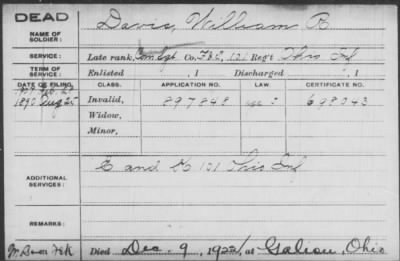 DEAD
NAME OF SOLDIER: Davis, William B
SERVICE: Late rank, Com Sgt Co. F&S, 121 Reg't Ohio Inf
TERM OF SERVICE: Enlisted , 1 Discharged , 1
DATE OF FILING. CLASS. APPLICATION NO. LAW. CERTIFICATE NO.
1890 Aug 25 Invalid, 897848 698043
Widow,
Minor,
ADDITIONAL SERVICES: E and K 121 Ohio Inf
REMARKS:
Died Dec. 9, 1922, at Galion, Ohio